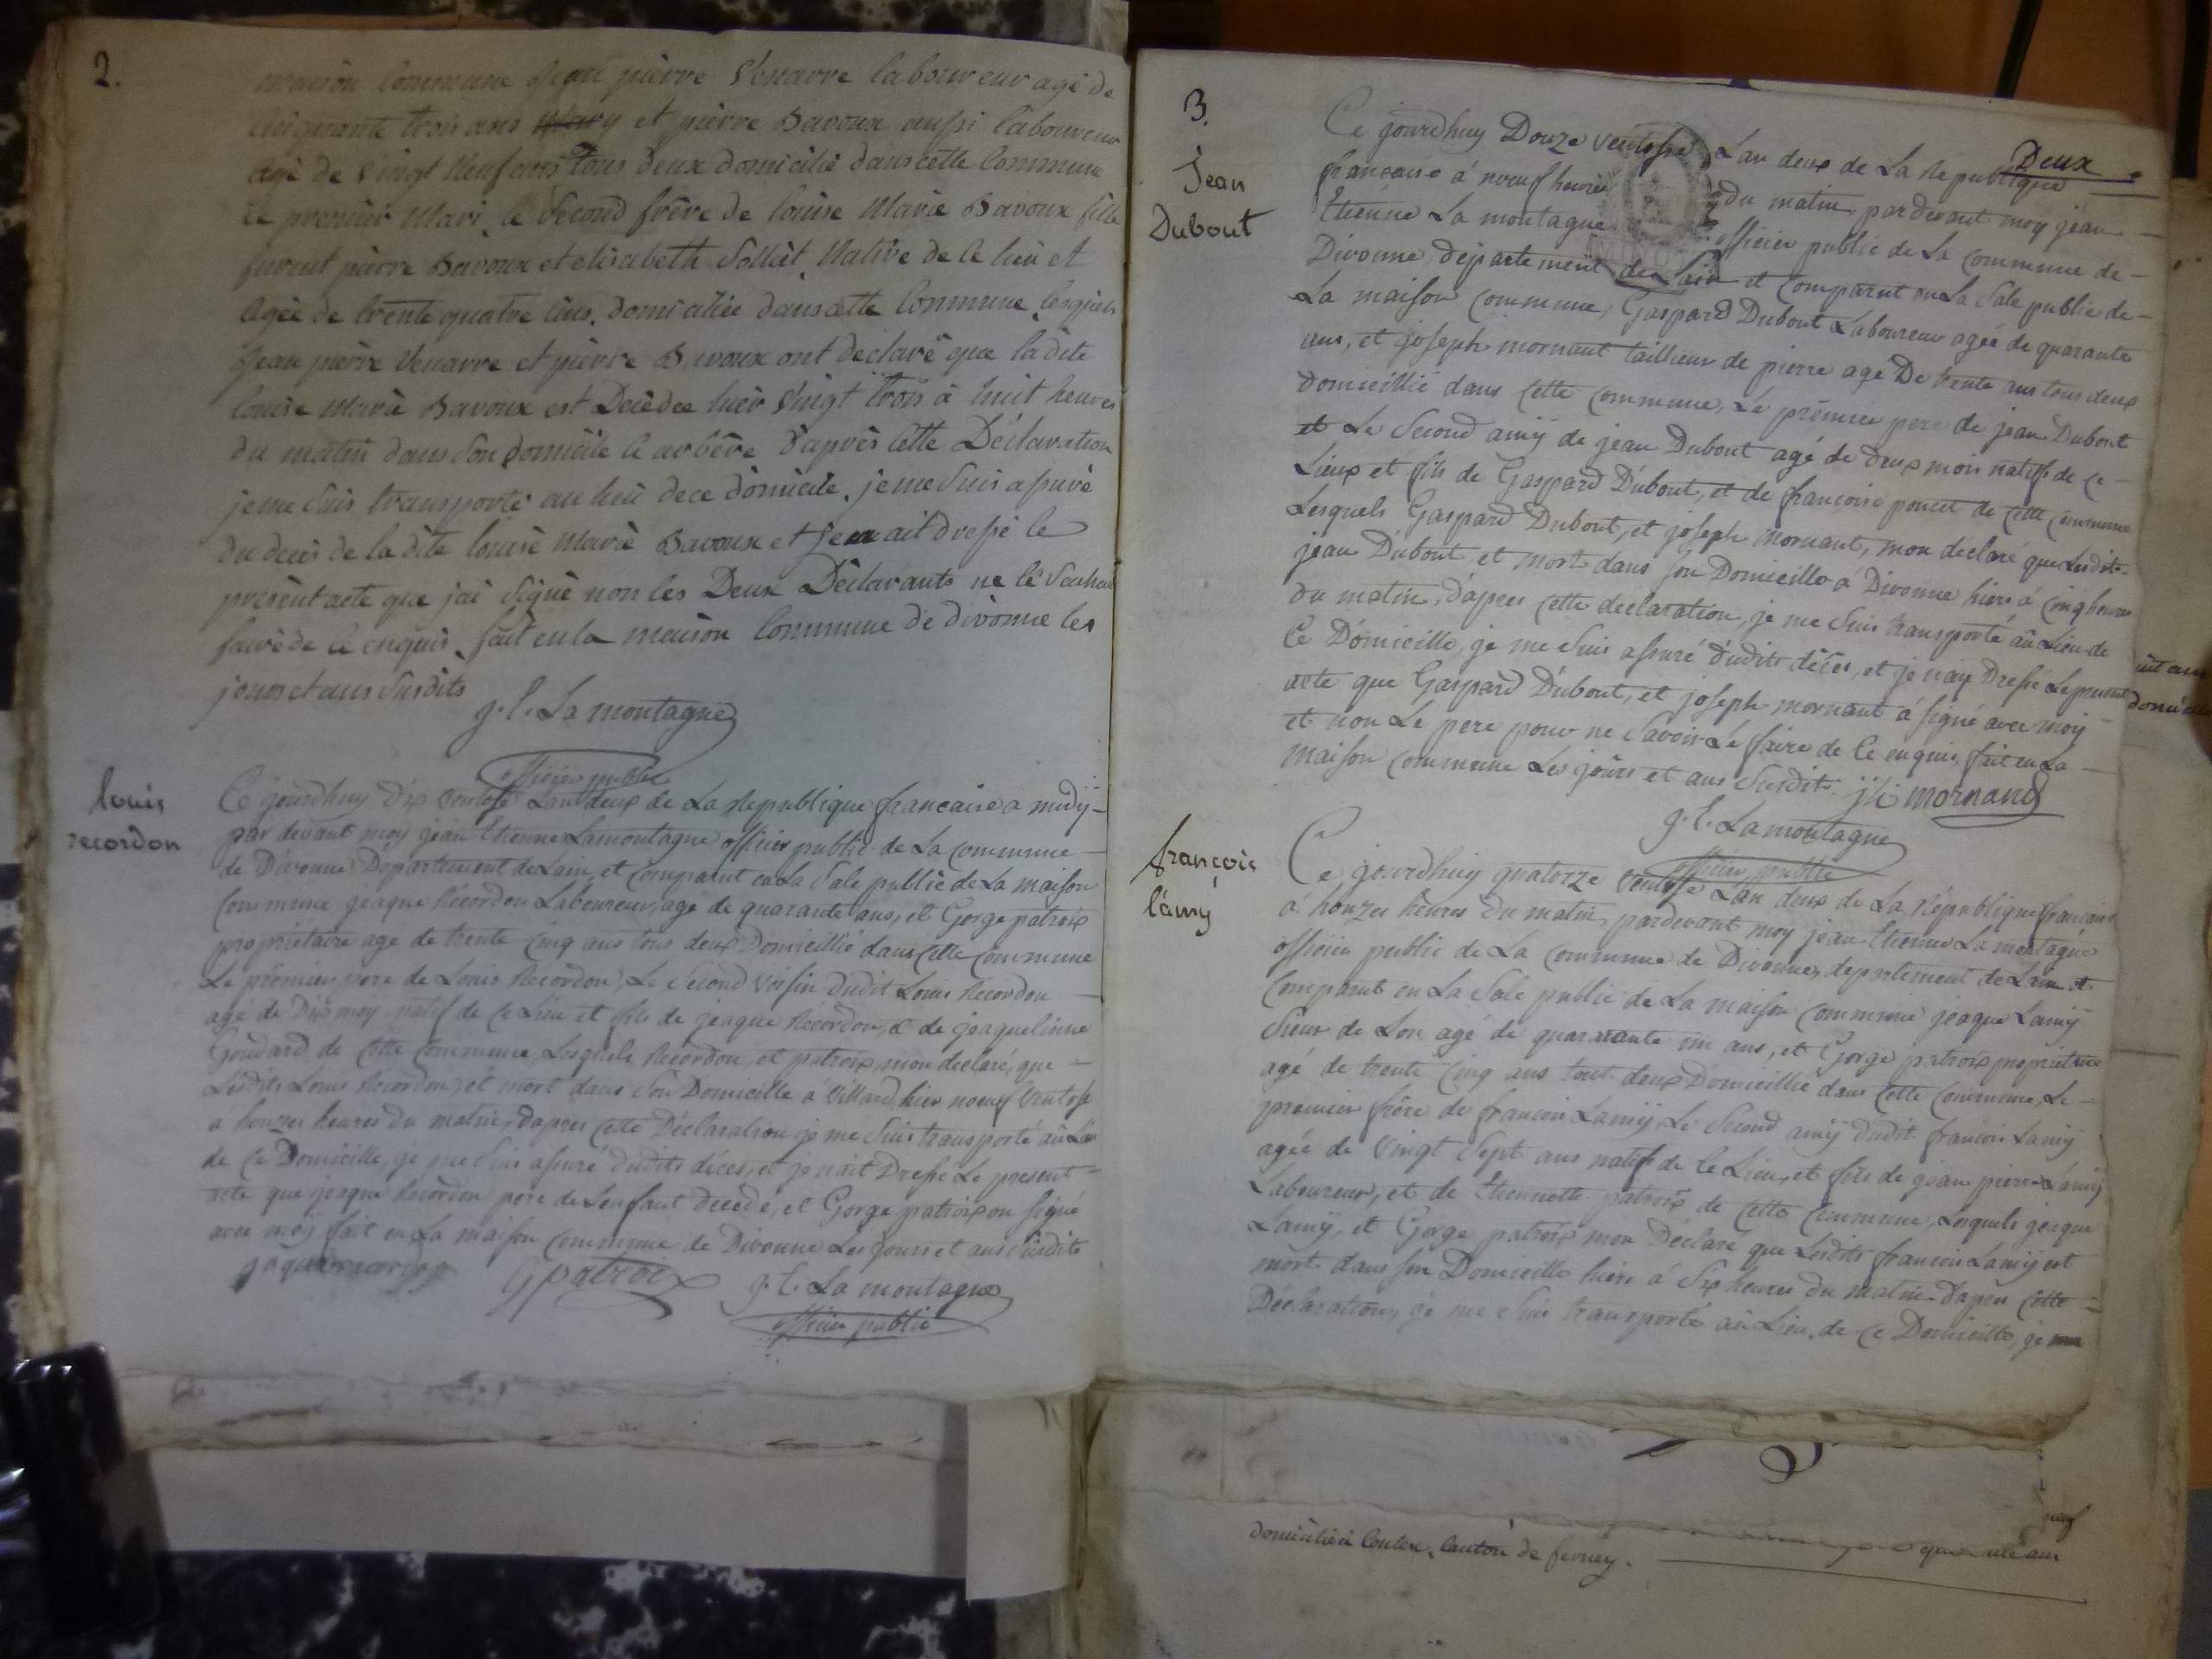 2.
maison commune Jean pierre Venarre laboureur agé de
cinquante trois ans et pierre Bavoux aussi laboureur
agé de vingt neuf ans tous deux domicilié dans cette commune
le premier Mari, le second frère de louise Marie Bavoux fille
furent pierre Bavoux et elisabeth Solliet, Native de ce lieu et
agée de trente quatre ans, domiciliée dans cette commune, lesquels
Jean pièrre Venarre et pièrre Bavoux ont declaré que ladite
louise Marie Bavoux est Décédée hièr vingt trois à huit heures
du matin dans son domicile a arbère d'après cette Déclaration
je me suis transporté au lieu de ce domicile, je me suis assuré
du decès de la dite louise Marie Bavoux et j'en ait dressé le
présent acte que j'ai signé non les Deux Déclarants ne le sachant
faire de ce enquis, fait en la maison commune de divonne les
jours et ans susdits
j. E. La montagne
officier public
louis
recordon
Ce jourdhuy dix ventose Lan deux de La Republique francaise a midy
par devant moy jean Etienne Lamontagne officier public de La commune
de Divonne Departement de Lain, et comparut en La Sale public de La maison
commune jeaque Recordon Laboureur, agé de quarante ans, et Gorge patroix
proprietaire agé de trente cinq ans tous deux Domicillié dans cette commune
Le premier pere de Louis Recordon, Le Second voisin dudit Louis Recordon
agé de Dix moy natif de ce Lieu et fils de jeaque Recordon, et de jeaquelinne
Goudard de cette commune, Lesquels Recordon, et patroix, mon declaré, que
Ledits Louis Recordon, et mort dans son Domicille á Villard hier noeuf Ventose
á honzes heures du matin, dapres cette Déclaration je me suis transporté aû Lieu
de ce Domicille, je me suis assuré dudits déces, et je nait Dressé Le present
acte que jeaque Recordon pere de Lenfant decedé, et Gorge patroix on signé
avec moy fait en La maison commune de Divonne Les jours et ans susdits
jaque recordon G patroix j. E. La montagne
officier public
3.
Deux
jean
Dubout
Ce jourdhuy Douze ventosse Lan deux de La Republique
francaise á noeuf heures du matin, pardevant moy jean
Etienne La montagne officier public de La commune de
Divonne, departement de Lain et comparut en La Sale public de
La maison commune, Gaspard Dubout Laboureur agée de quarante
ans, et joseph mornant taillieur de pierre agé De trente ans tous deux
domicillié dans cette commune, Le premier pere de jean Dubout
et Le Second amÿ de jean Dubout agé de deux mois natif de ce
Lieux et fils de Gaspard Dubout, et de francoise poncet de cette commune
Lesquels Gaspard Dubout, et joseph mornant, mon declaré que Ledits
jean Dubout et mort dans son Domicille á Divonne hiers á cinq heures
du matin, dapres cette declaration, je me suis transporté aû Lieu de
Ce Domicille, je me suis assuré dudits déces, et je nay Dressé Le present
acte que Gaspard Dubout, et joseph mornant á signé avec moy
et non Le pere pour ne Savoir Le faire de Ce enquis, fait en La
maison commune Les jours et ans Susdit. mornand
j. E. Lamontagne
officier public
françois
lámy
Ce jourdhuy quatorze ventose Lan deux de La République francaise
á honzes heures du matin, pardevant moy jean Etienne La montagne
officier public de La commune de Divonne, departement de Lain et
comparut en La Sale public de La maison commune jeaque Lamÿ
Sieur de Lon agé de quarante un ans, et Gorge patroix proprietaire
agé de trente cinq ans tout deux Domicillié dans cette commune, Le
premier frère de francois Lamÿ, Le Second amÿ dudit francois Lamÿ
agée de vingt Sept ans natif de ce Lieu, et fils de jean pierre Lámÿ
Laboureur, et de Etiennette patroix de cette commune, Lesquels jeaque
Lamÿ, et Gorge patroix mon Déclaré que Ledits francois Lamÿ et
mort dans son Domicille hiers á Six heures du matin Dapres cette
Déclaration, je me suis transporté aû Lieu, de ce Domicille, je me
domiciliée canton de ferney.